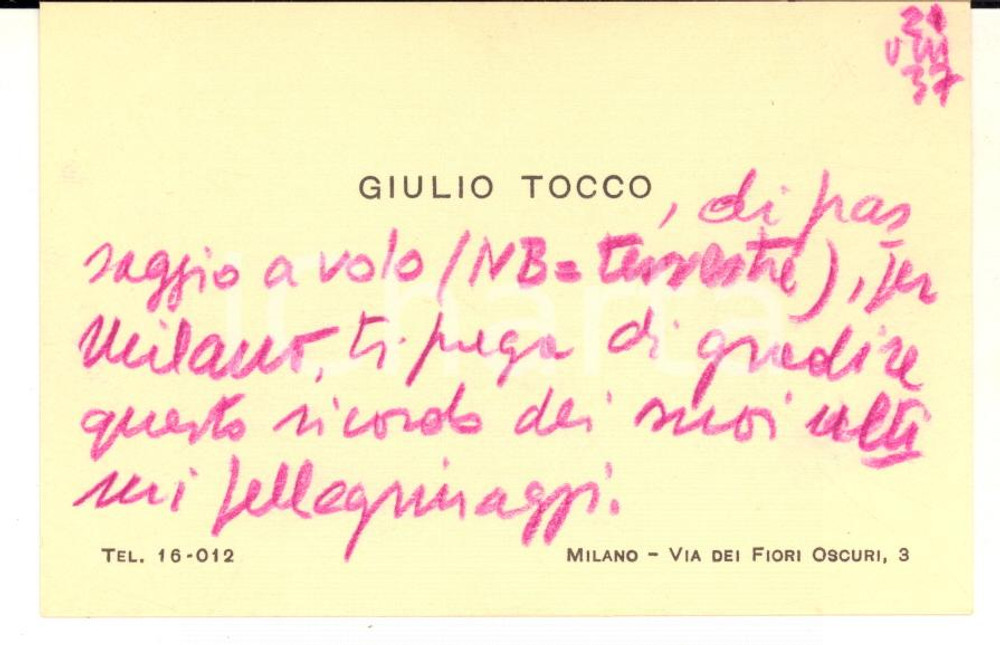 21
VIII
37
GIULIO TOCCO, di pas
saggio a volo (NB = terrestre), per
Milano, ti prega di gradire
questo ricordo dei suoi ulti
mi pellegrinaggi.
TEL. 16-012
MILANO - VIA DEI FIORI OSCURI, 3